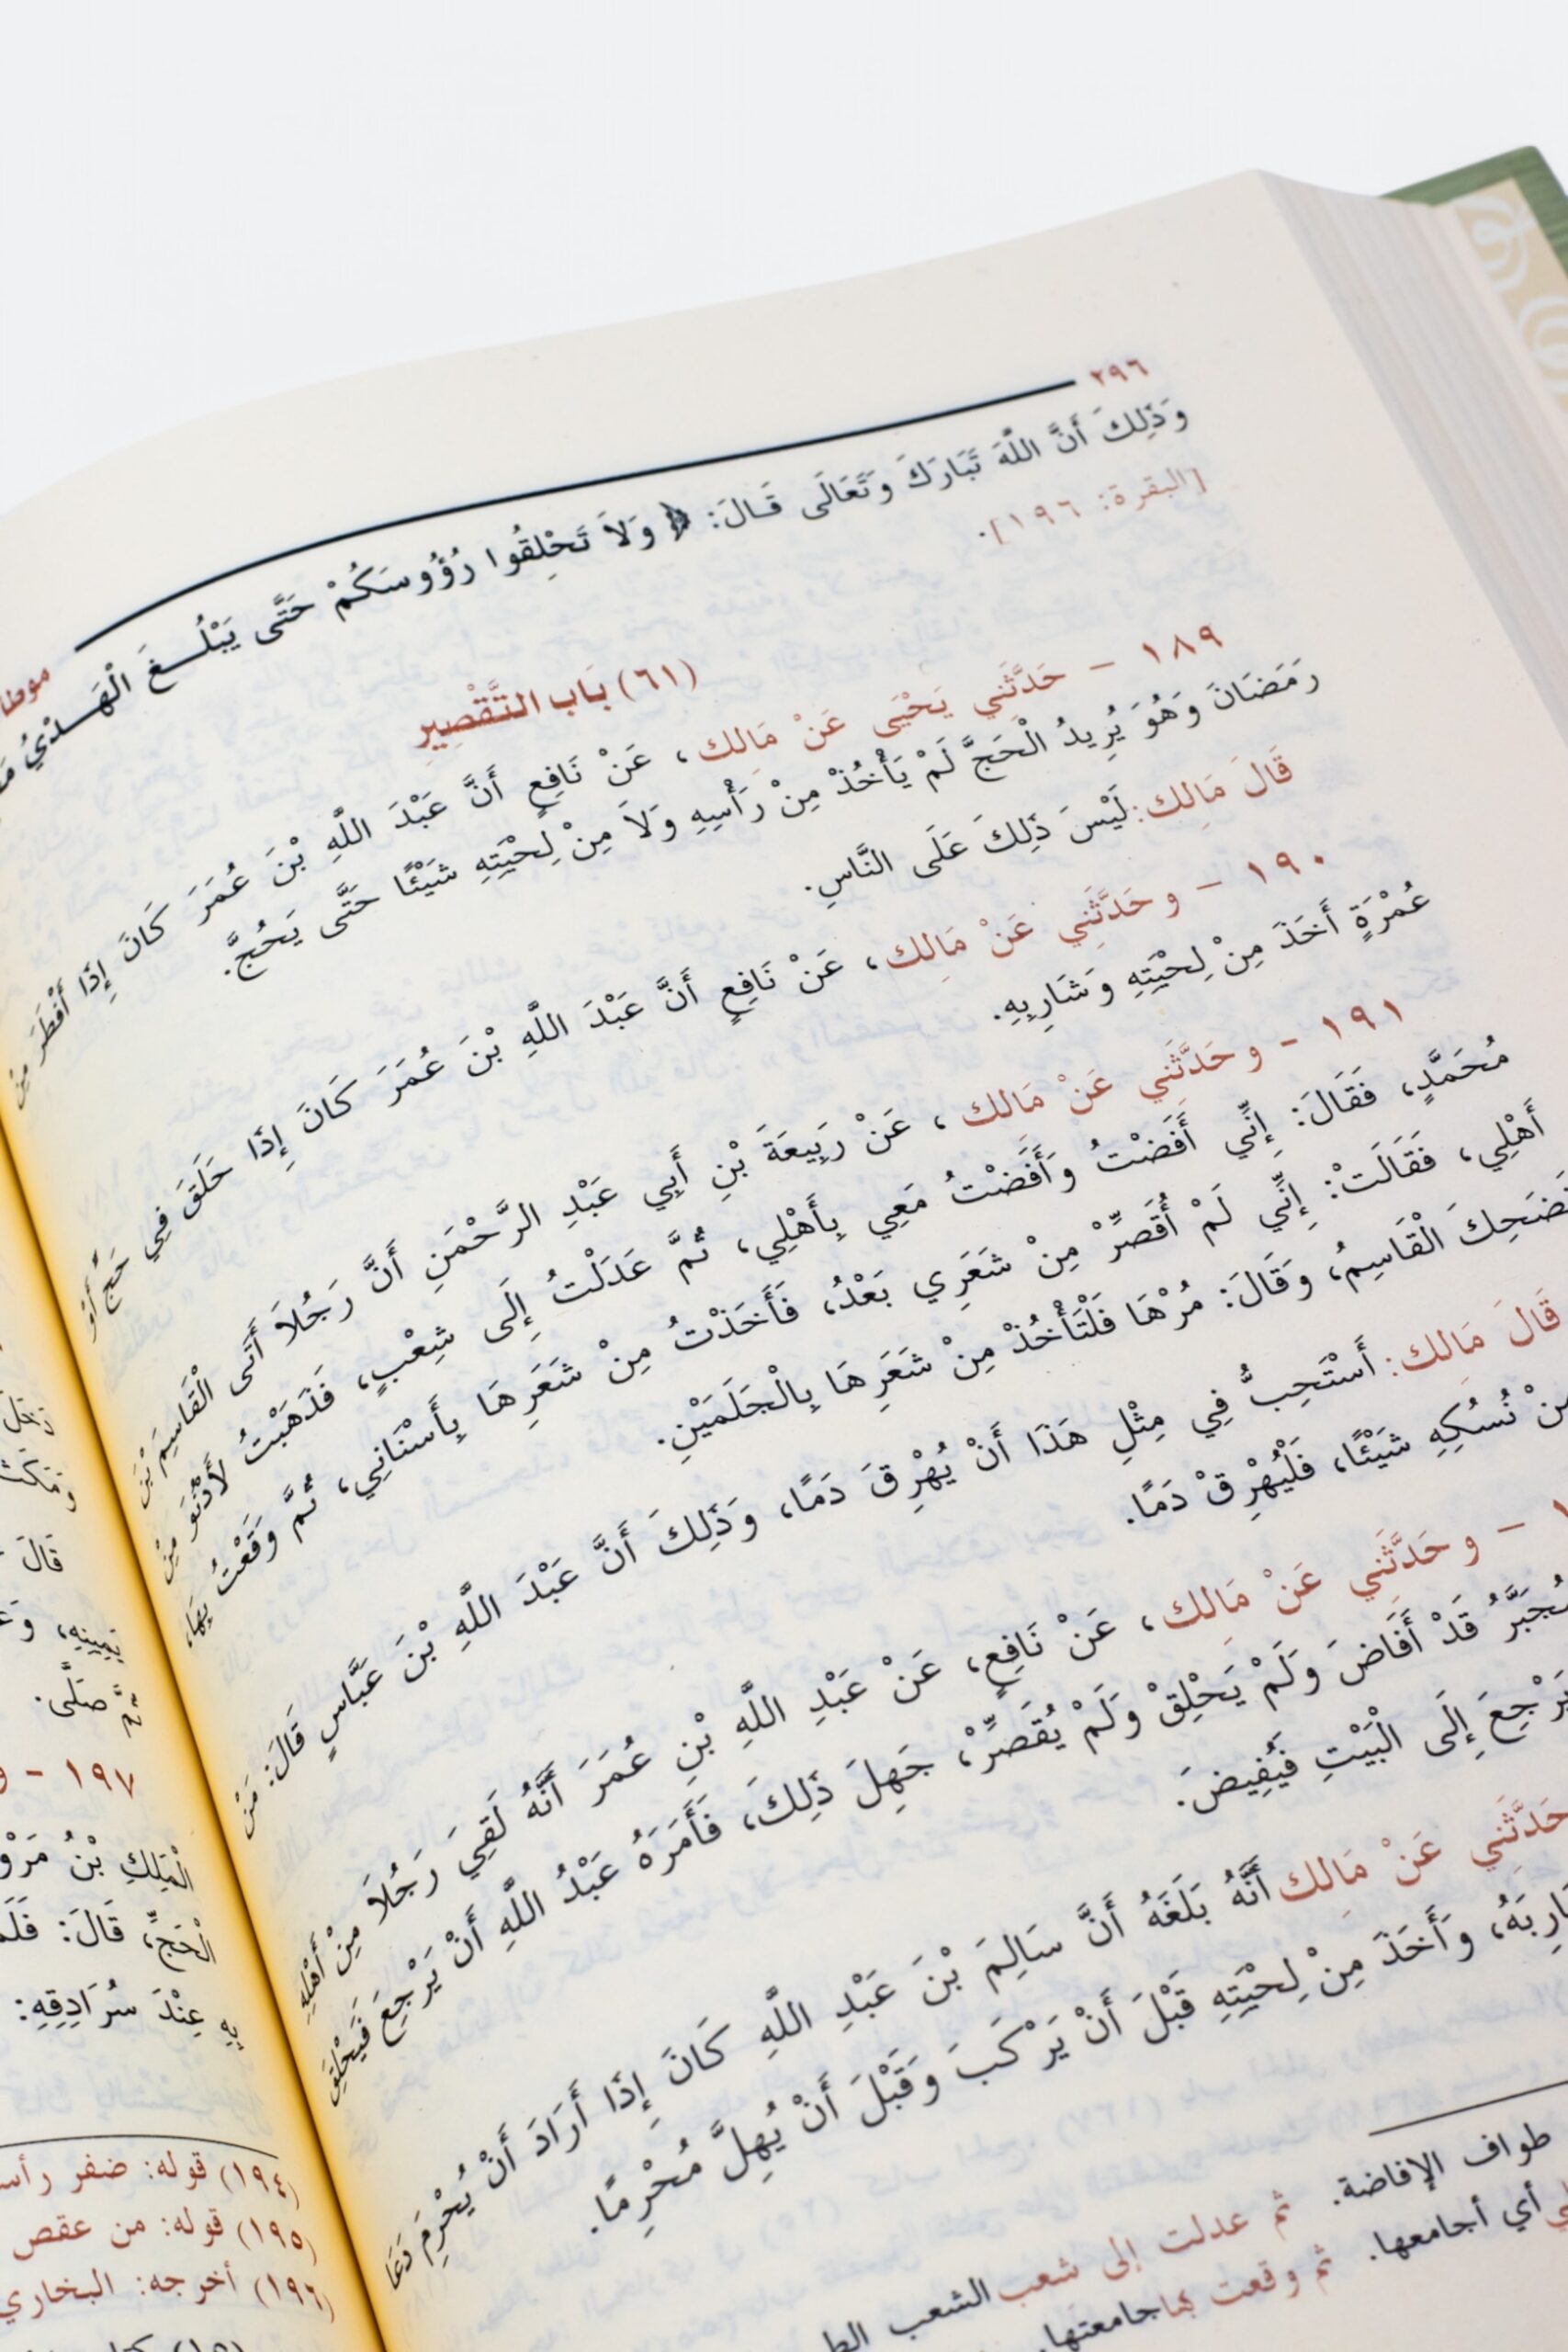 ٢٩٦
موطأ
وَذَلِكَ أَنَّ اللَّهَ تَبَارَكَ وَتَعَالَى قَالَ: ﴿ وَلاَ تَحْلِقُوا رُؤُوسَكُمْ حَتَّى يَبْلُغَ الْهَدْيُ
[البقرة: ١٩٦].
(٦١) بَاب التَّقْصِيرِ
١٨٩ - حَدَّثَنِي يَحْيَى عَنْ مَالِك، عَنْ نَافِعٍ أَنَّ عَبْدَ اللَّهِ بْنَ عُمَرَ كَانَ إِذَا أَفْطَرَ مِنْ
رَمَضَانَ وَهُوَ يُرِيدُ الْحَجَّ لَمْ يَأْخُذْ مِنْ رَأْسِهِ وَلاَ مِنْ لِحْيَتِهِ شَيْئًا حَتَّى يَحُجَّ.
قَالَ مَالِك: لَيْسَ ذَلِكَ عَلَى النَّاسِ.
١٩٠ - و حَدَّثَنِي عَنْ مَالِك، عَنْ نَافِعٍ أَنَّ عَبْدَ اللَّهِ بْنَ عُمَرَ كَانَ إِذَا حَلَقَ فِي حَجٍّ أَوْ
عُمْرَةٍ أَخَذَ مِنْ لِحْيَتِهِ وَشَارِبِهِ.
١٩١ - و حَدَّثَنِي عَنْ مَالِك، عَنْ رَبِيعَةَ بْنِ أَبِي عَبْدِ الرَّحْمَنِ أَنَّ رَجُلاً أَتَى الْقَاسِمَ بْنَ
مُحَمَّدٍ، فَقَالَ: إِنِّي أَفَضْتُ وَأَفَضْتُ مَعِي بِأَهْلِي، ثُمَّ عَدَلْتُ إِلَى شِعْبٍ، فَذَهَبْتُ لأَدْنُوَ مِنْ
أَهْلِي، فَقَالَتْ: إِنِّي لَمْ أُقَصِّرْ مِنْ شَعَرِي بَعْدُ، فَأَخَذْتُ مِنْ شَعَرِهَا بِأَسْنَانِي، ثُمَّ وَقَعْتُ بِهَا،
فَضَحِكَ الْقَاسِمُ، وَقَالَ: مُرْهَا فَلْتَأْخُذْ مِنْ شَعَرِهَا بِالْجَلَمَيْنِ.
قَالَ مَالِك: أَسْتَحِبُّ فِي مِثْلِ هَذَا أَنْ يُهْرِقَ دَمًا، وَذَلِكَ أَنَّ عَبْدَ اللَّهِ بْنَ عَبَّاسٍ قَالَ: مَنْ
مِنْ نُسُكِهِ شَيْئًا، فَلْيُهْرِقْ دَمًا.
- و حَدَّثَنِي عَنْ مَالِك، عَنْ نَافِعٍ، عَنْ عَبْدِ اللَّهِ بْنِ عُمَرَ أَنَّهُ لَقِيَ رَجُلاً مِنْ أَهْلِهِ
مُجَبَّرُ قَدْ أَفَاضَ وَلَمْ يَحْلِقْ وَلَمْ يُقَصِّرْ، جَهِلَ ذَلِكَ، فَأَمَرَهُ عَبْدُ اللَّهِ أَنْ يَرْجِعَ فَيَحْلِقَ
يَرْجِعَ إِلَى الْبَيْتِ فَيُفِيضَ.
حَدَّثَنِي عَنْ مَالِك أَنَّهُ بَلَغَهُ أَنَّ سَالِمَ بْنَ عَبْدِ اللَّهِ كَانَ إِذَا أَرَادَ أَنْ يُحْرِمَ دَعَا
وَأَخَذَ مِنْ لِحْيَتِهِ قَبْلَ أَنْ يَرْكَبَ وَقَبْلَ أَنْ يُهِلَّ مُحْرِمًا.
طواف الإفاضة. ثم عدلت إلى شعب الشعب
أي أجامعها. ثم وقعت بها جامعتها.
قَالَ
صَلَّى.
١٩٧ -
الْمَلِكِ بْنُ
الْحَجِّ، قَالَ:
بِهِ عِنْدَ سُرَادِقِهِ:
(١٩٤) قوله: ضفر
(١٩٥) قوله: من عقص
(١٩٦) أخرجه: البخاري